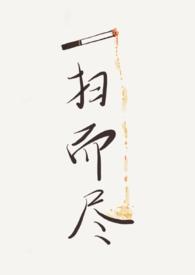 一扫而尽